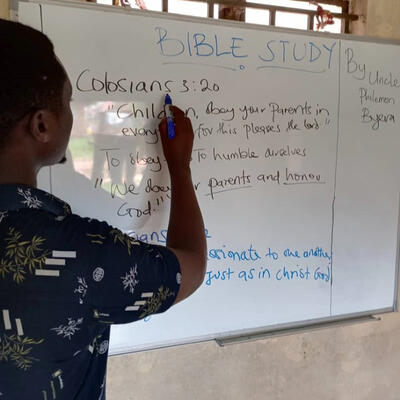 BIBLE STUDY
Colosians 3:20
"Children, obey your Parents in
every for this pleases the Lord."
To obey To humble ourselves
"We obey our parents and honour
God."
to one another
just as in christ God
By Uncle
Philemon
Byera